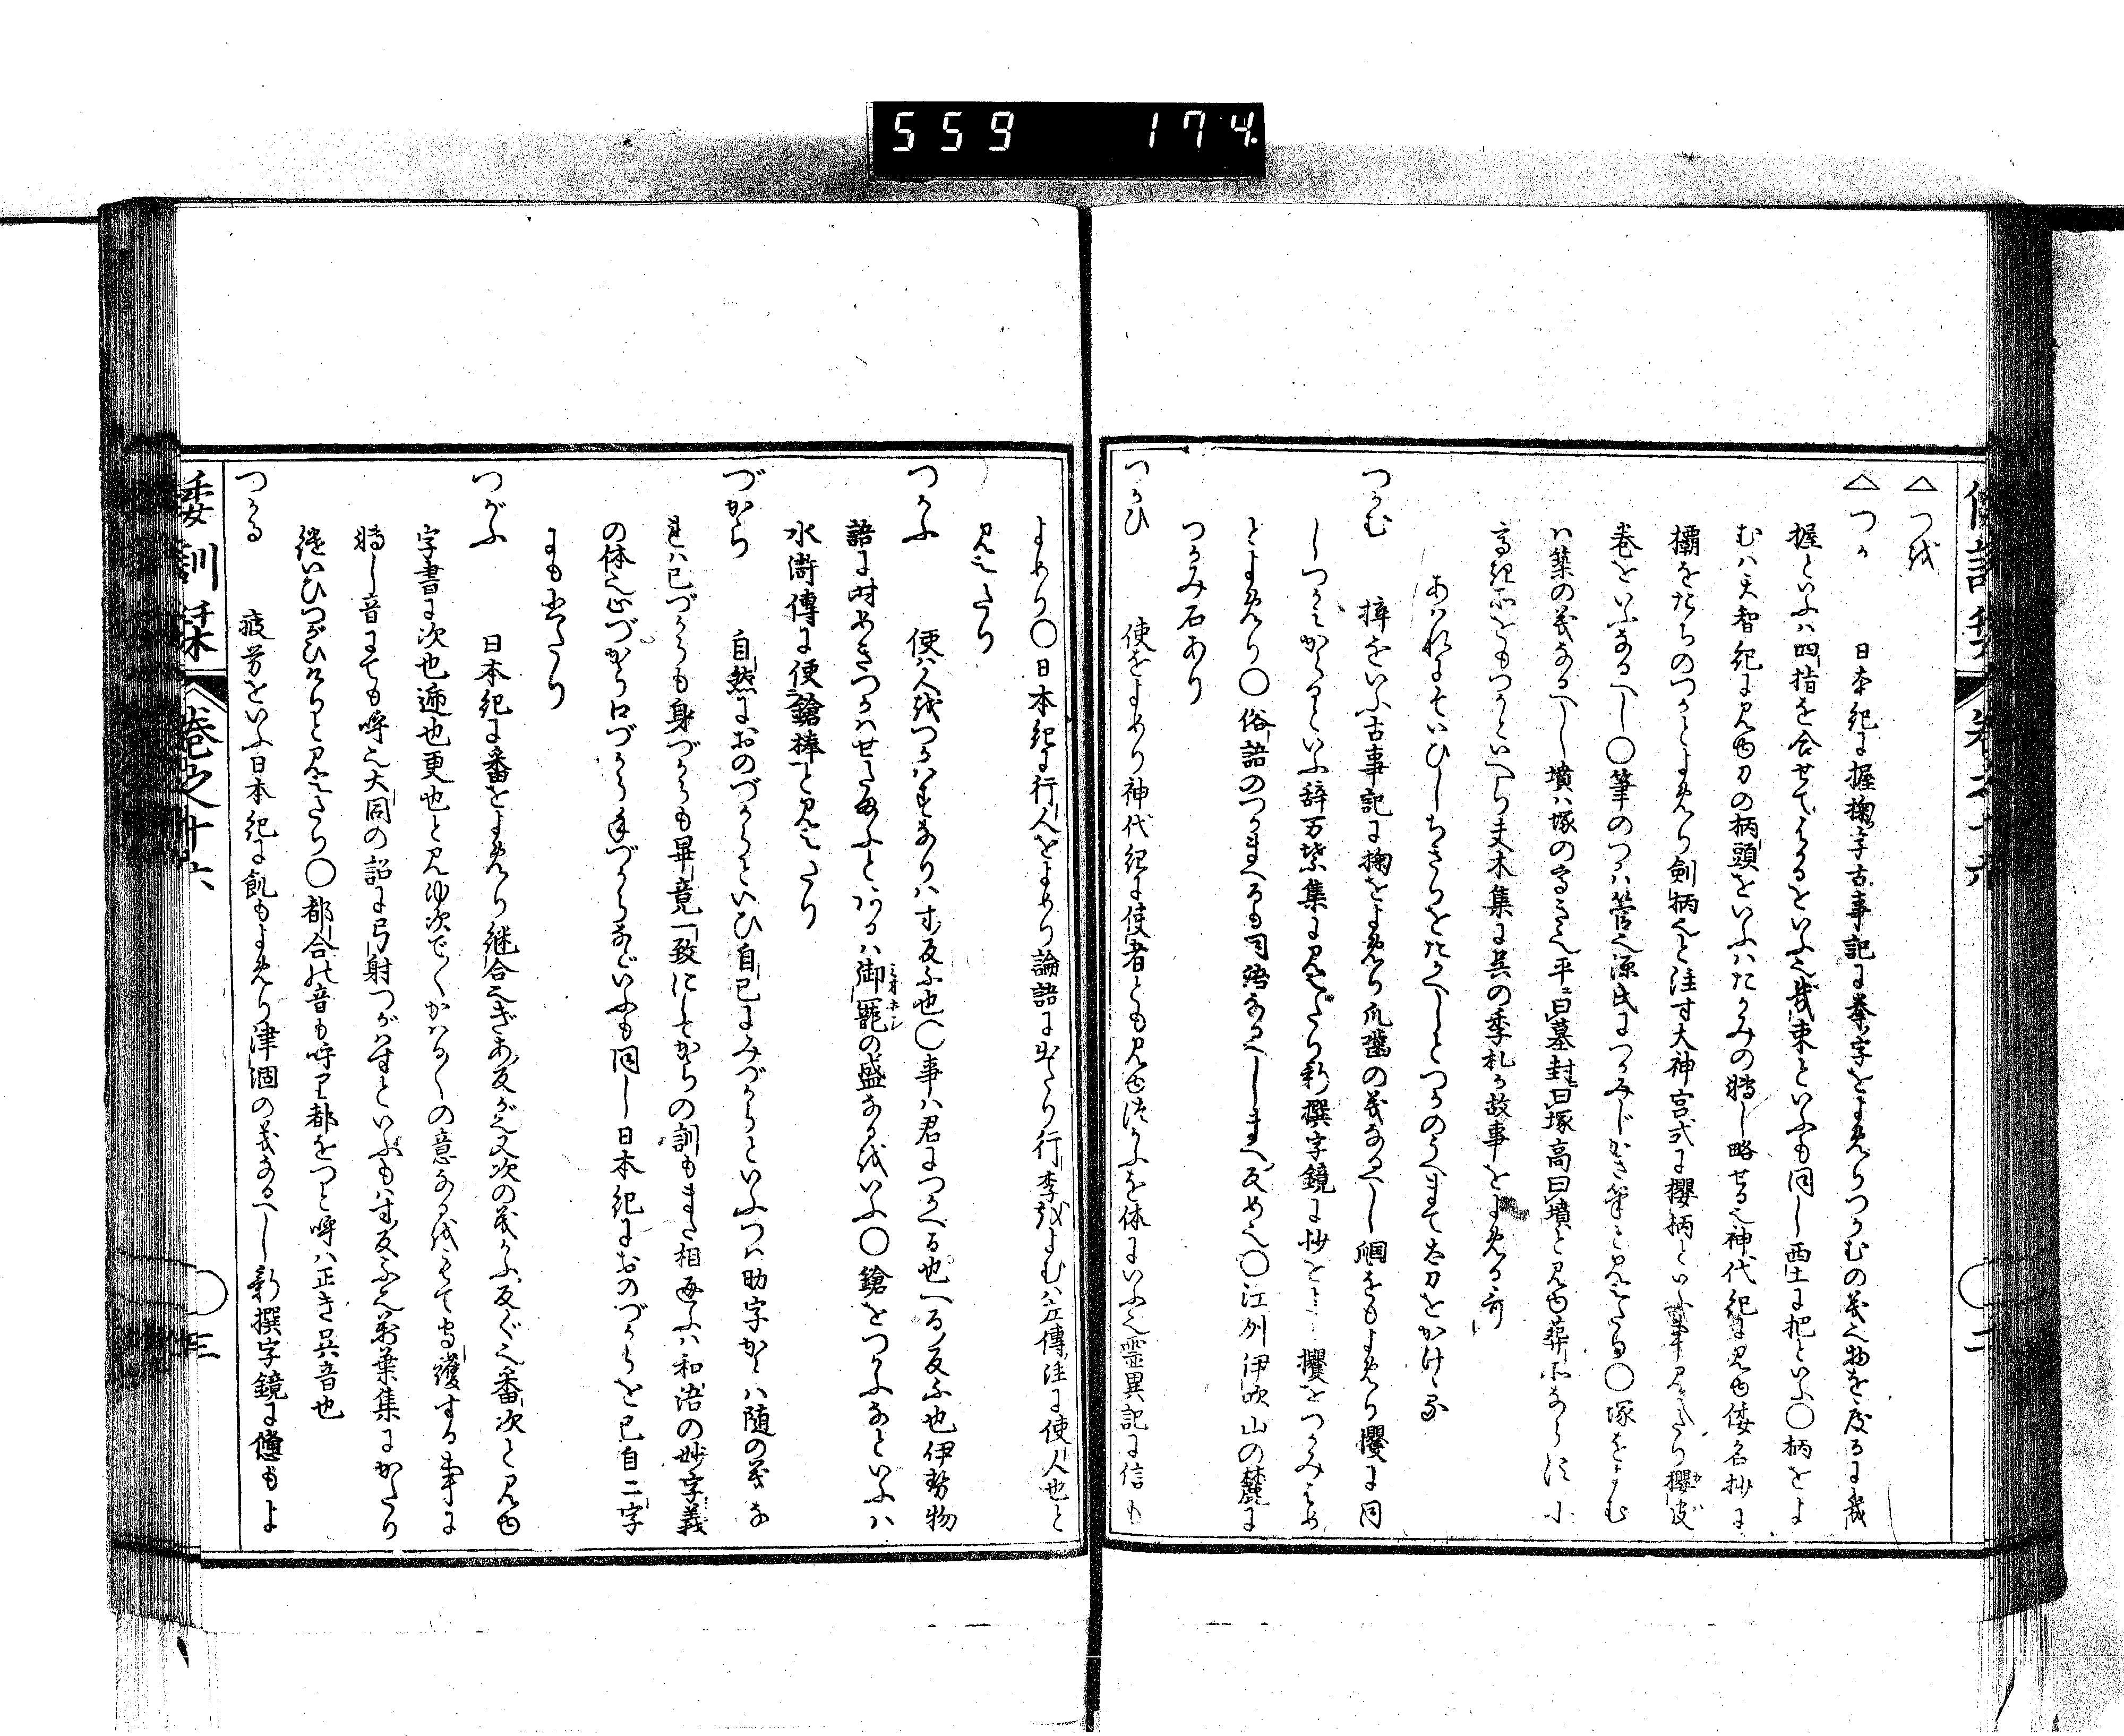 559 174.
△つ越
△つか 日本紀に握掬字古事記に拳字をよめりつかむの義也物を度るに幾
握といふハ四指を合せてはかるをいふ也幾束といふも同し西土に把といふ○柄をよ
むハ天智紀に見ゆ刀の柄頭をいふハたかみの転し略せる也神代紀に見ゆ倭名抄に
欛をたちのつかとよめり剣柄也と注す大神宮式に櫻柄といふ事見えたり櫻皮
巻をいふなるへし○筆のつかハ管也源氏につかみじかき筆と見えたる○塚をよむ
ハ築の義なるへし墳ハ塚の高き也平曰墓封曰塚高曰墳と見ゆ葬所ならす小
高き所をもつかといへり夫木集に呉の季札か故事をよめる哥
あはれにそいひしちきりをたかへしとつかのうへまて太刀をかけゝる
つかむ 搾をいふ古事記に掬をよめり爪齧の義なるへし 䤋をもよめり攫に同
しつかみかゝるといふ辞万葉集に見えたり新撰字鏡に抄をと 攫をつかみとる
とよめり○俗語のつかまへるも同語なるへしまへ反め也○江州伊吹山の麓に
つかみ石あり
つかひ 使をよめり神代紀に使者とも見ゆつかふを体にいふ也霊異記に信も
よめり○日本紀に行人をよめり論語に出たり行李をよむハ左傳注に使人也と
見えたり
つかふ 便ハ人をつかハすなりハす反ふ也○事ハ君につかへる也へる反ふ也伊勢物
語に時めきつかハせたまふとハあるハ御寵の盛なるをいふ○鎗をつかふなといふハ
水滸傳に便鎗棒と見えたり
づから 自然におのづからといひ自己にみづからといふつハ助字からハ随の義な
れハ己づからも身づからも畢竟一致にしてからの訓もまた相通ふハ和語の妙字義
の体也心づから口づから手づからなどいふも同し日本紀におのづからを己自二字
にも出たり
つがふ 日本紀に番をよめり継合也ぎあ反が也又次の義かふ反ぐ也番次と見ゆ
字書に次也逓也更也と見ゆ次でゝかハるゝの意なるをもて守護する事に
転し音にても呼也大同の詔に弓射つがはすといふもハす反ふ也万葉集にかたり
継いひつがひけりと見えたり○都合の音も呼り都をつと呼ハ正き呉音也
つかる 疲労をいふ日本紀に飢もよめり津涸の義なるへし新撰字鏡に憊もよ
倭訓栞 巻之十六 三